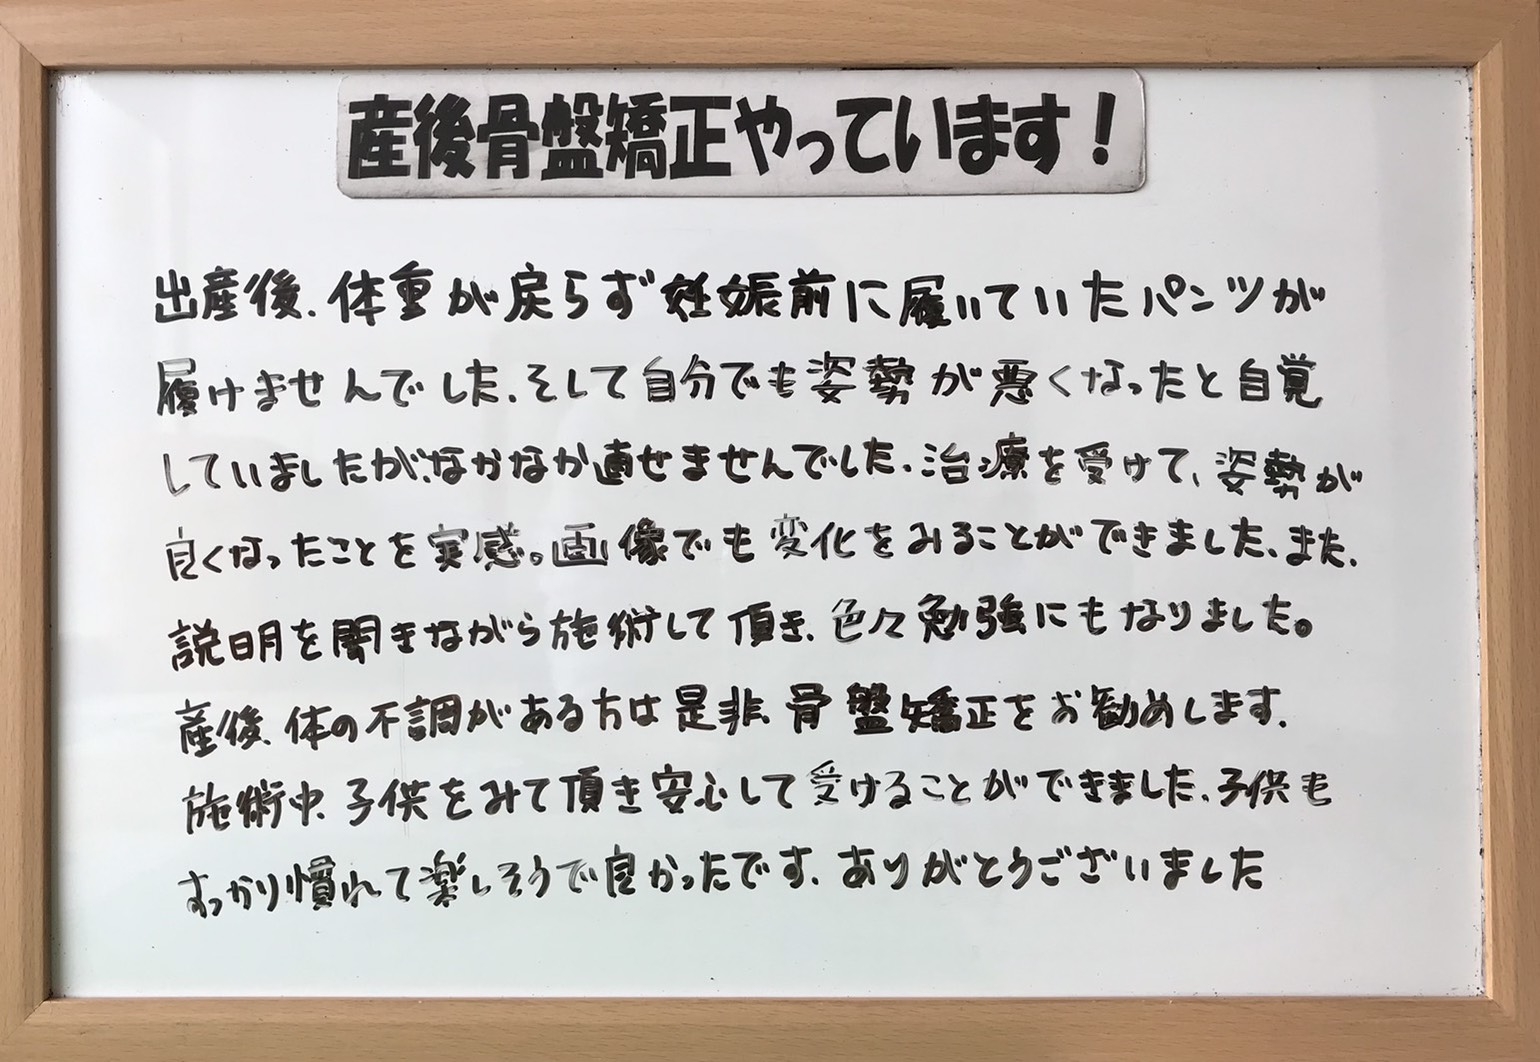 産後骨盤矯正やっています！
出産後、体重が戻らず妊娠前に履いていたパンツが
履けませんでした、そして自分でも姿勢が悪くなったと自覚
していましたが、なかなか直せませんでした、治療を受けて、姿勢が
良くなったことを実感。画像でも変化をみることができました、また、
説明を聞きながら施術して頂き、色々勉強にもなりました。
産後、体の不調がある方は是非、骨盤矯正をお勧めします、
施術中、子供をみて頂き安心して受けることができました、子供も
すっかり慣れて楽しそうで良かったです、ありがとうございました